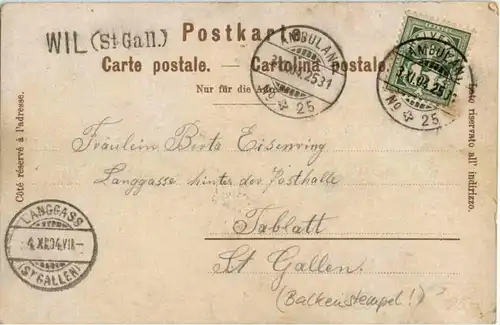 WIL (St Gall.)
Postkarte.
Carte postale. — Cartolina postale.
Nur für die
Côté réservé à l'adresse.
Lato riservato all' indirizzo.
AMBULANT
No 25
AMBULANT
No 25
Fräulein Berta Eisenring
Langgasse hinter der Posthalle
Tablatt
St Gallen
LANGGASS
4.XI.04.VII-
(ST. GALLEN)
(Balkenstempel!)